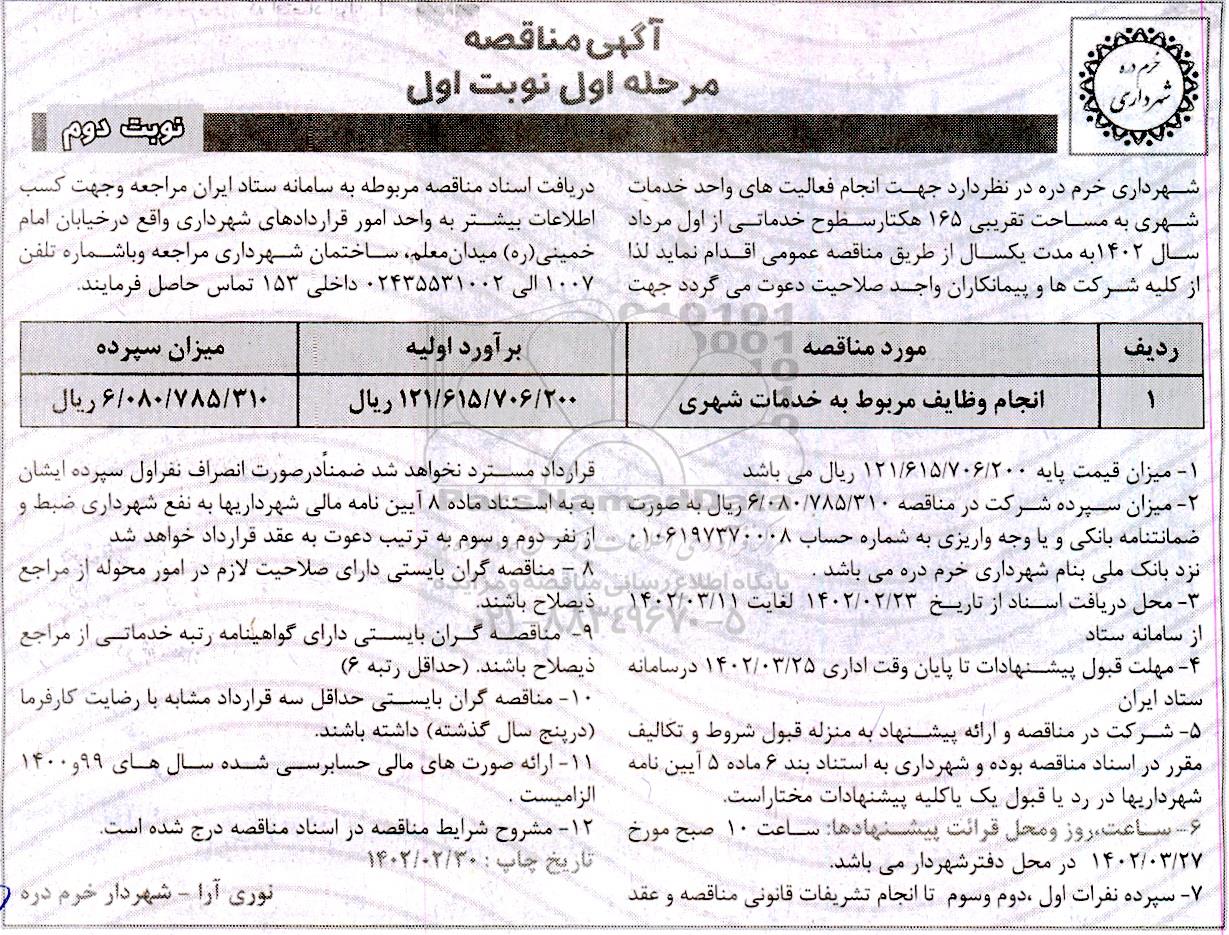 آگهی مناقصه
مرحله اول نوبت اول
خرم دره
شهرداری
نوبت دوم
شهرداری خرم دره در نظردارد جهت انجام فعالیت های واحد خدمات
شهری به مساحت تقریبی ۱۶۵ هکتارسطوح خدماتی از اول مرداد
سال ۱۴۰۲به مدت یکسال از طریق مناقصه عمومی اقدام نماید لذا
از کلیه شرکت ها و پیمانکاران واجد صلاحیت دعوت می گردد جهت
دریافت اسناد مناقصه مربوطه به سامانه ستاد ایران مراجعه وجهت کسب
اطلاعات بیشتر به واحد امور قراردادهای شهرداری واقع درخیابان امام
خمینی(ره) میدان‌معلم، ساختمان شهرداری مراجعه وباشماره تلفن
۱۰۰۷ الی ۰۲۴۳۵۵۳۱۰۰۲ داخلی ۱۵۳ تماس حاصل فرمایند.
ردیف مورد مناقصه برآورد اولیه میزان سپرده
۱ انجام وظایف مربوط به خدمات شهری ۱۲۱/۶۱۵/۷۰۶/۲۰۰ ریال ۶/۰۸۰/۷۸۵/۳۱۰ ریال
۱- میزان قیمت پایه ۱۲۱/۶۱۵/۷۰۶/۲۰۰ ریال می باشد
۲- میزان سپرده شرکت در مناقصه ۶/۰۸۰/۷۸۵/۳۱۰ ریال به صورت
ضمانتنامه بانکی و یا وجه واریزی به شماره حساب ۰۱۰۶۱۹۷۳۷۰۰۰۸
نزد بانک ملی بنام شهرداری خرم دره می باشد .
۳- محل دریافت اسناد از تاریخ ۱۴۰۲/۰۲/۲۳ لغایت ۱۴۰۲/۰۳/۱۱
از سامانه ستاد
۴- مهلت قبول پیشنهادات تا پایان وقت اداری ۱۴۰۲/۰۳/۲۵ درسامانه
ستاد ایران
۵- شرکت در مناقصه و ارائه پیشنهاد به منزله قبول شروط و تکالیف
مقرر در اسناد مناقصه بوده و شهرداری به استناد بند ۶ ماده ۵ آیین نامه
شهرداریها در رد یا قبول یک یاکلیه پیشنهادات مختاراست.
۶- ساعت،روز ومحل قرائت پیشنهادها: ساعت ۱۰ صبح مورخ
۱۴۰۲/۰۳/۲۷ در محل دفترشهردار می باشد.
۷- سپرده نفرات اول ،دوم وسوم تا انجام تشریفات قانونی مناقصه و عقد
قرارداد مسترد نخواهد شد ضمناًدرصورت انصراف نفراول سپرده ایشان
به به استناد ماده ۸ آیین نامه مالی شهرداریها به نفع شهرداری ضبط و
از نفر دوم و سوم به ترتیب دعوت به عقد قرارداد خواهد شد
۸ – مناقصه گران بایستی دارای صلاحیت لازم در امور محوله از مراجع
ذیصلاح باشند.
۹- مناقصه گران بایستی دارای گواهینامه رتبه خدماتی از مراجع
ذیصلاح باشند. (حداقل رتبه ۶)
۱۰- مناقصه گران بایستی حداقل سه قرارداد مشابه با رضایت کارفرما
(درپنج سال گذشته) داشته باشند.
۱۱- ارائه صورت های مالی حسابرسی شده سال های ۹۹و۱۴۰۰
الزامیست .
۱۲- مشروح شرایط مناقصه در اسناد مناقصه درج شده است.
تاریخ چاپ : ۱۴۰۲/۰۲/۳۰
نوری آرا – شهردار خرم دره
ParsNamadData
پایگاه اطلاع رسانی مناقصه و مزایده
۰۲۱-۸۸۳۴۹۶۷۰-۵